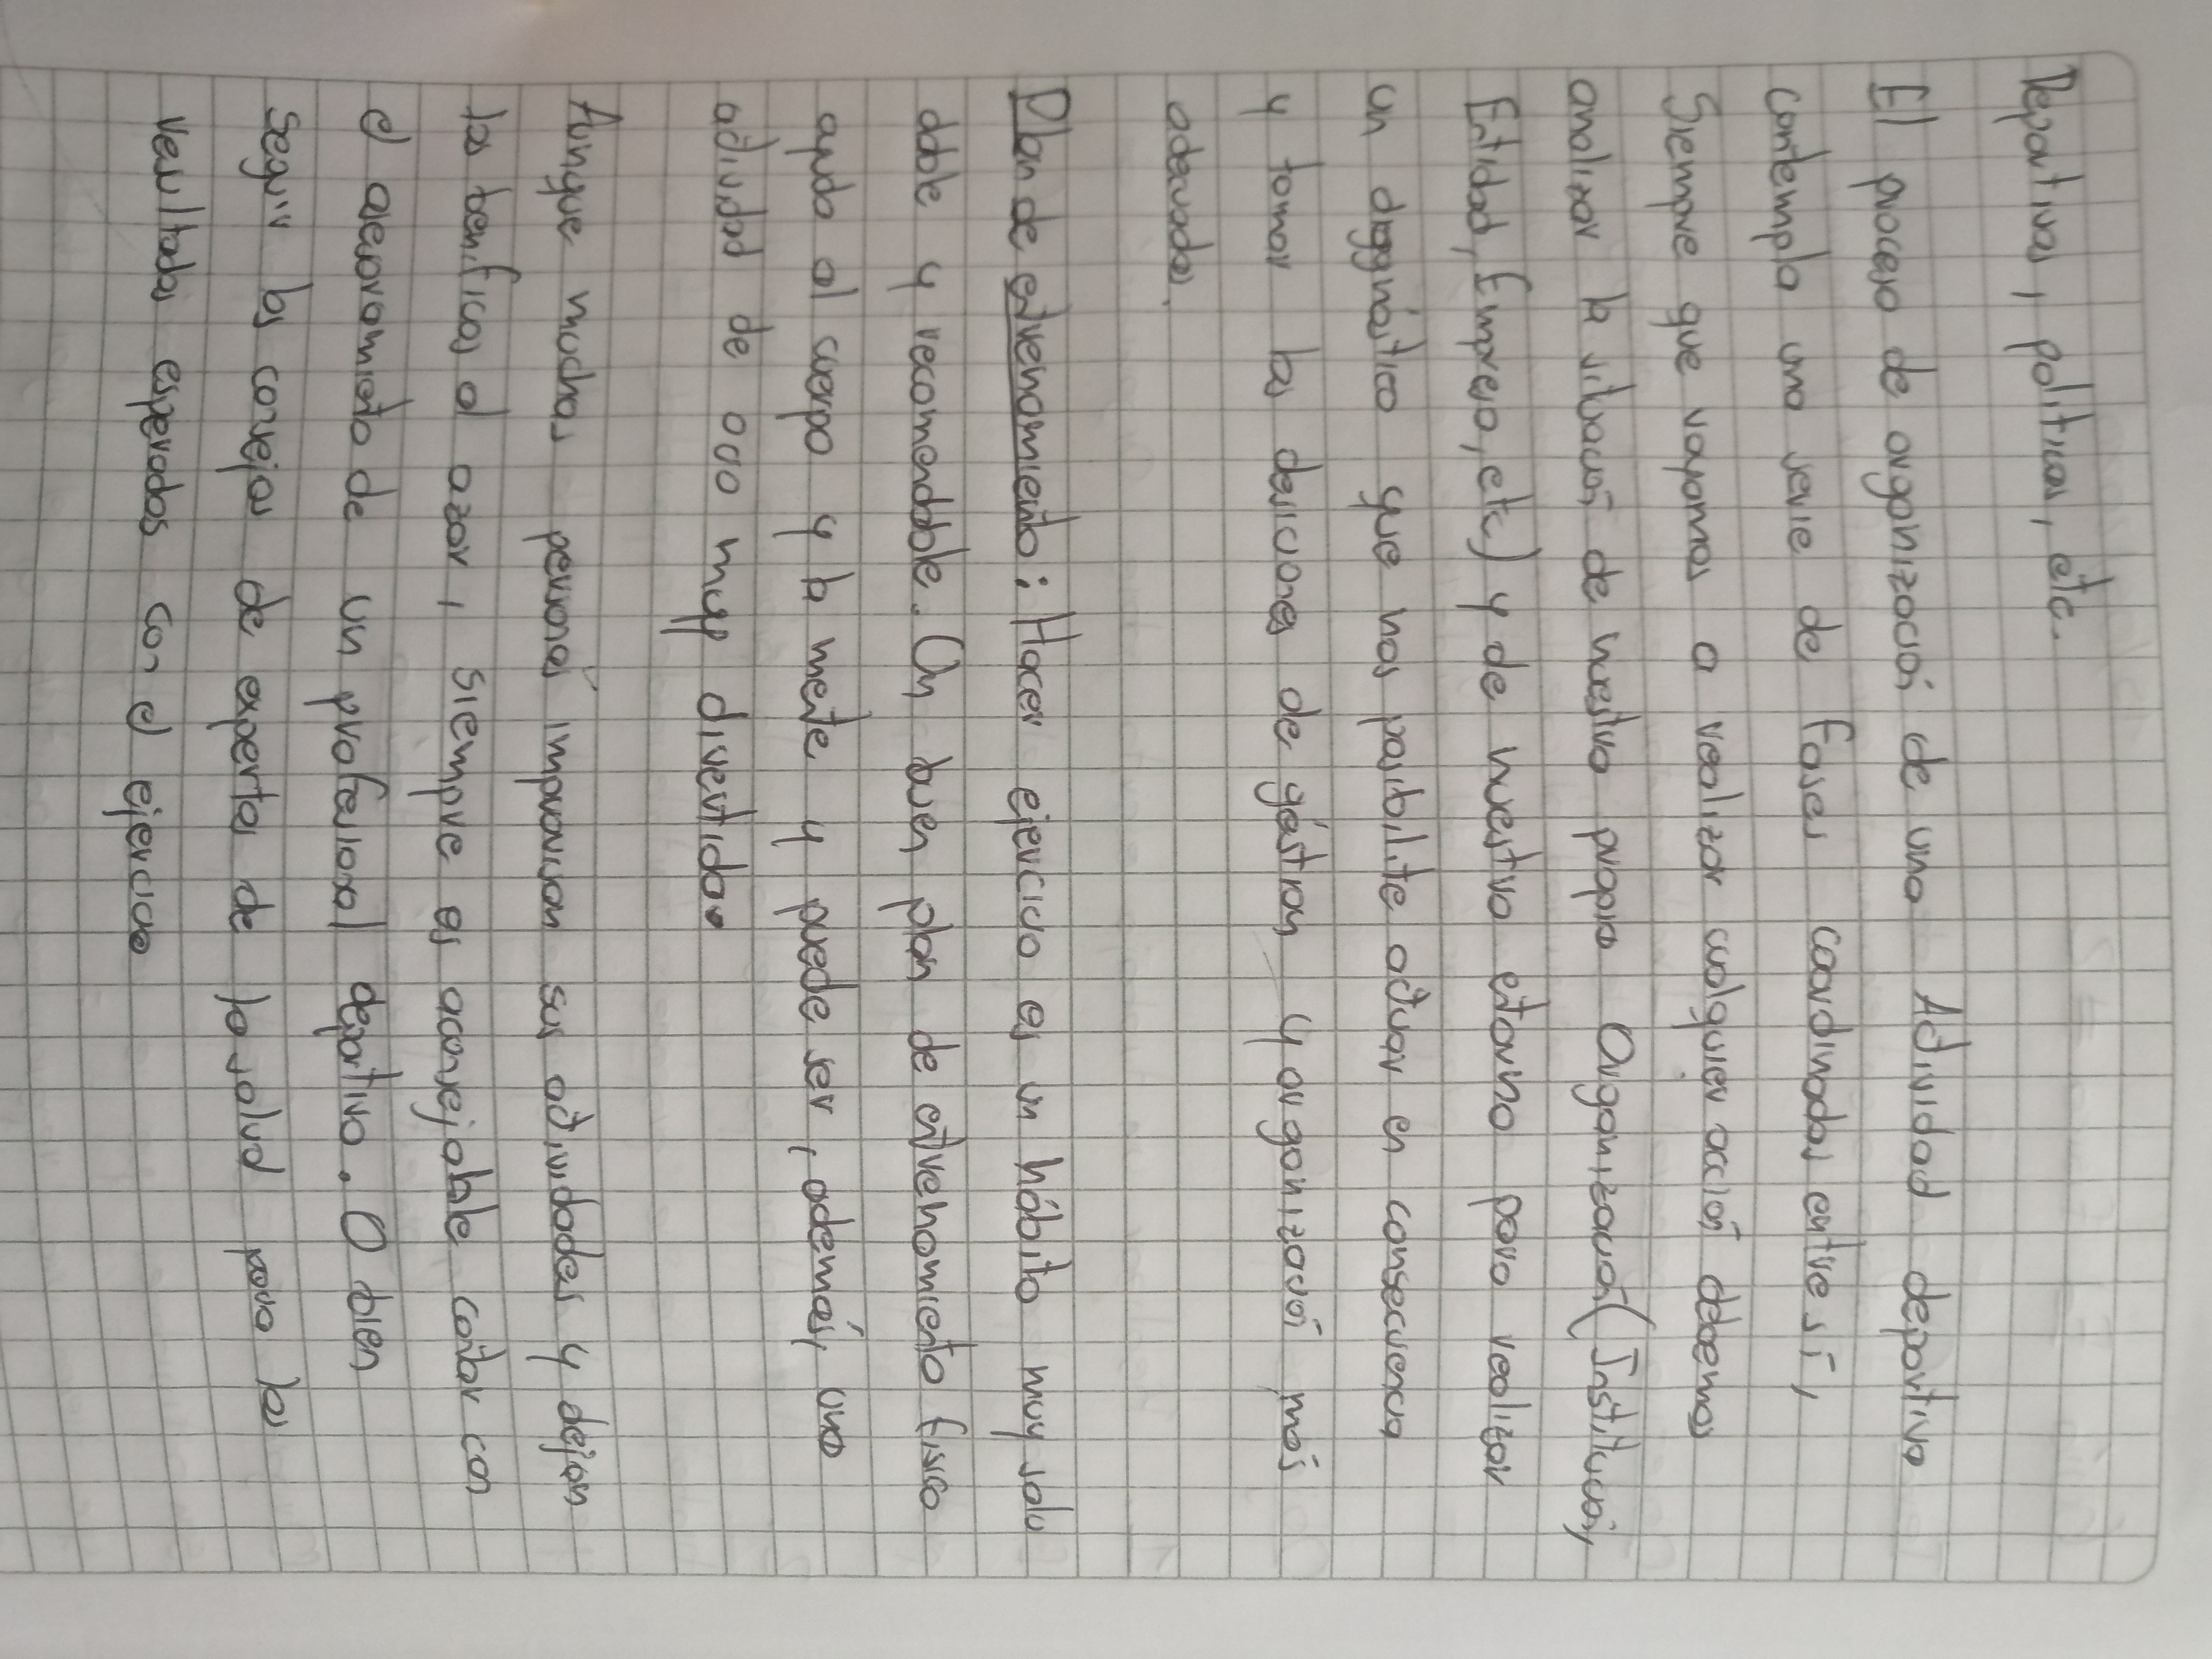 Deportivas, politicas, etc.
El proceso de organización de una Actividad deportiva
contempla una serie de fases coordinadas entre sí,
Siempre que vayamos a realizar cualquier acción debemos
analizar la situación de nuestra propia Organización (Institución,
Entidad, Empresa, etc) y de nuestro entorno para realizar
un diagnóstico que nos posibilite actuar en consecuencia
y tomar las desiciones de géstion y organización más
adecuadas.
Plan de entrenamiento: Hacer ejercicio es un hábito muy salu
dable y recomendable. Un buen plan de entrenamiento fisico
ayuda al cuerpo y la mente y puede ser, además, una
actividad de ocio muy divertida.
Aunque muchas personas improvisan sus actividades y dejan
los benificos al azar, siempre es aconsejable contar con
el asesoramiento de un profesional deportivo. O bien
seguir los consejos de expertos de la salud para los
resultados esperados con el ejercicio